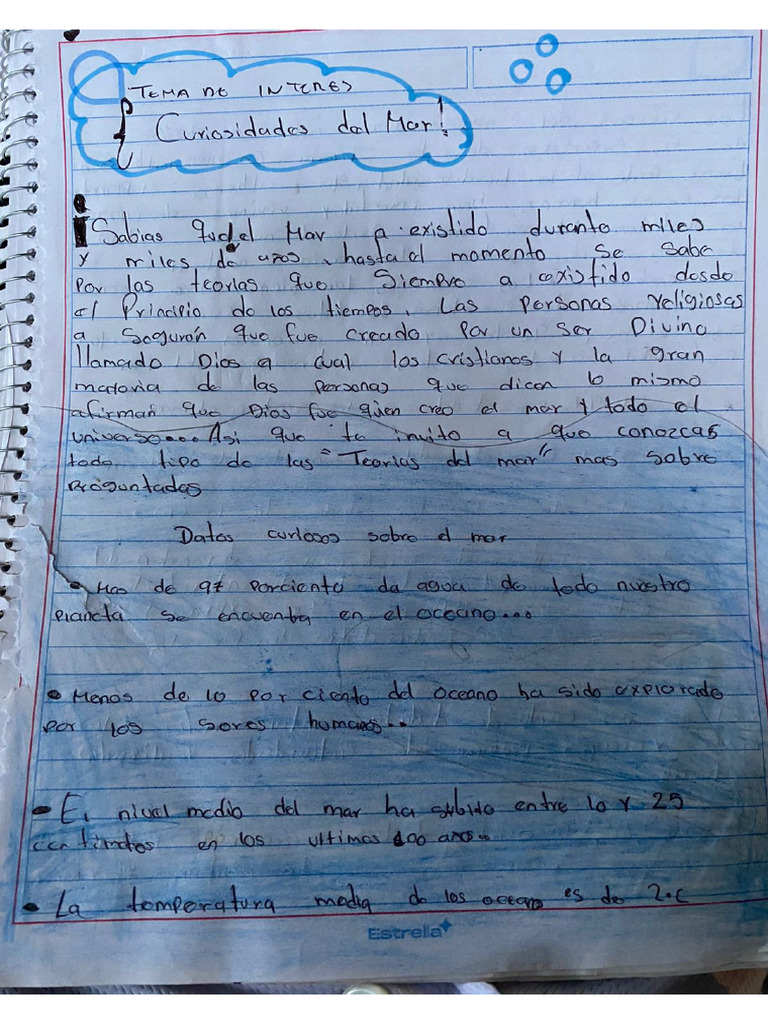 TEMA DE INTERES
Curiosidades del Mar!
¡Sabias que el Mar a existido durante miles
y miles de años, hasta el momento se sabe
por las teorias que Siempre a existido desde
el Principio de los tiempos, Las Personas religiosas
a seguran que fue creado por un ser Divino
llamado Dios a cual los cristianos y la gran
mayoria de las personas que dicen lo mismo
afirman que Dios fue quien creo el mar y todo el
universo... Asi que te invito a que conozcas
todo tipo de las "Teorias del mar" mas sobre
preguntadas
Datos curiosos sobre el mar
• Mas de 97 porciento da agua de todo nuestro
planeta se encuentra en el oceano...
• Menos de 10 por ciento del oceano ha sido explorado
por los seres humanos..
• El nivel medio del mar ha subido entre 10 y 25
centimetros en los ultimos 100 años..
• La temperatura media de los oceano es de 2°C
Estrella